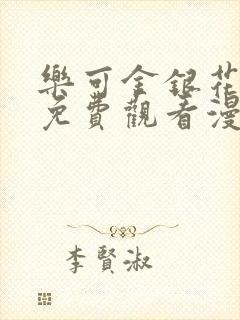 樂可金銀花
免費觀看漫
李賢淑